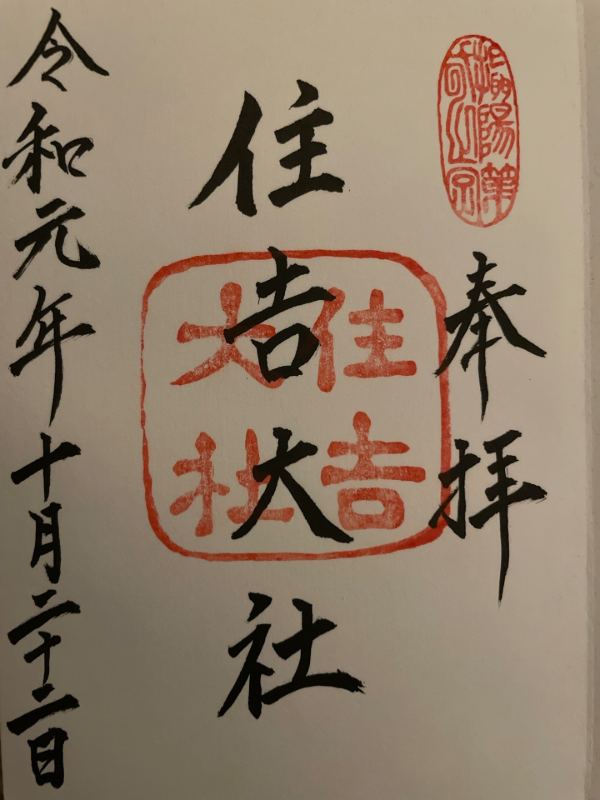 奉拝
住吉大社
住吉
大社
令和元年十月二十二日